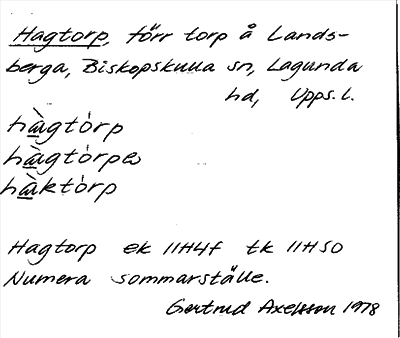 Hagtorp, förr torp å Lands-
berga, Biskopskulla sn, Lagunda
hd, Upps. l.
hà̱gtórp
hà̱gtórpeɷ
hà̱którp
Hagtorp ek 11H4f tk 11H50
Numera sommarställe.
Gertrud Axelsson 1978